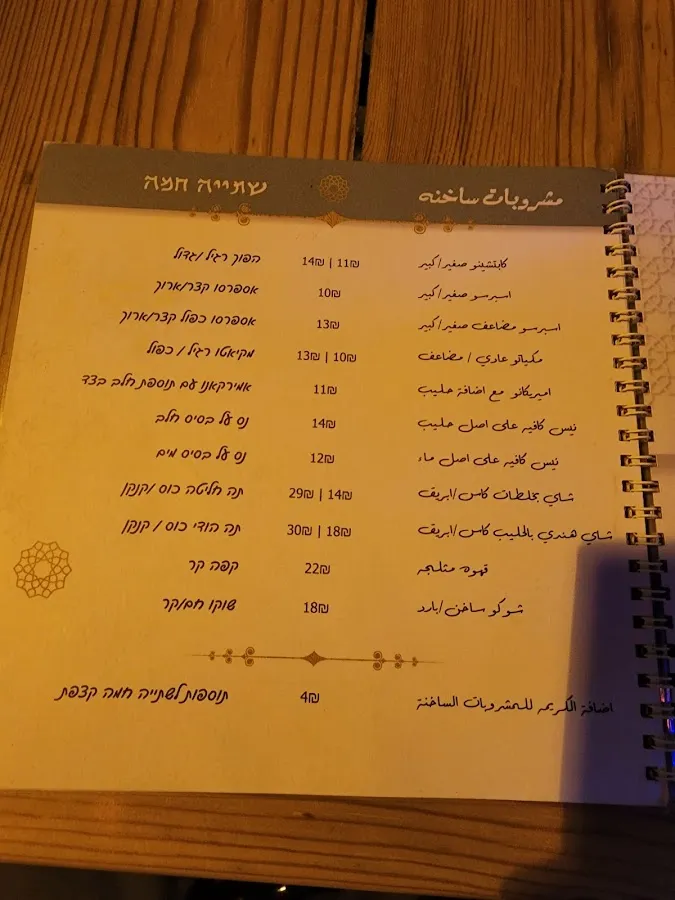 שתייה חמה مشروبات ساخنه
הפוך רגיל/גדול 14₪ | 11₪ كابتشينو صغير/كبير
אספרסו קצר/ארוך 10₪ اسبرسو صغير/كبير
אספרסו כפול קצר/ארוך 13₪ اسبرسو مضاعف صغير/كبير
מקיאטו רגיל / כפול 13₪ | 10₪ مكياتو عادي / مضاعف
אמריקאנו עם תוספת חלב בצד 11₪ امیریکانو مع اضافة حليب
נס על בסיס חלב 14₪ نيس كافيه على اصل حليب
נס על בסיס מים 12₪ نيس كافيه على اصل ماء
תה חליטה כוס /קנקן 29₪ | 14₪ شاي بخلطات كاس/ابريق
תה הודי כוס / קנקן 30₪ | 18₪ شاي هندي بالحليب كاس/ابريق
קפה קר 22₪ قهوه مثلجه
שוקו חם/קר 18₪ شوكو ساخن/بارد
תוספות לשתייה חמה קצפת 4₪ اضافة الكريمه للمشروبات الساخنة